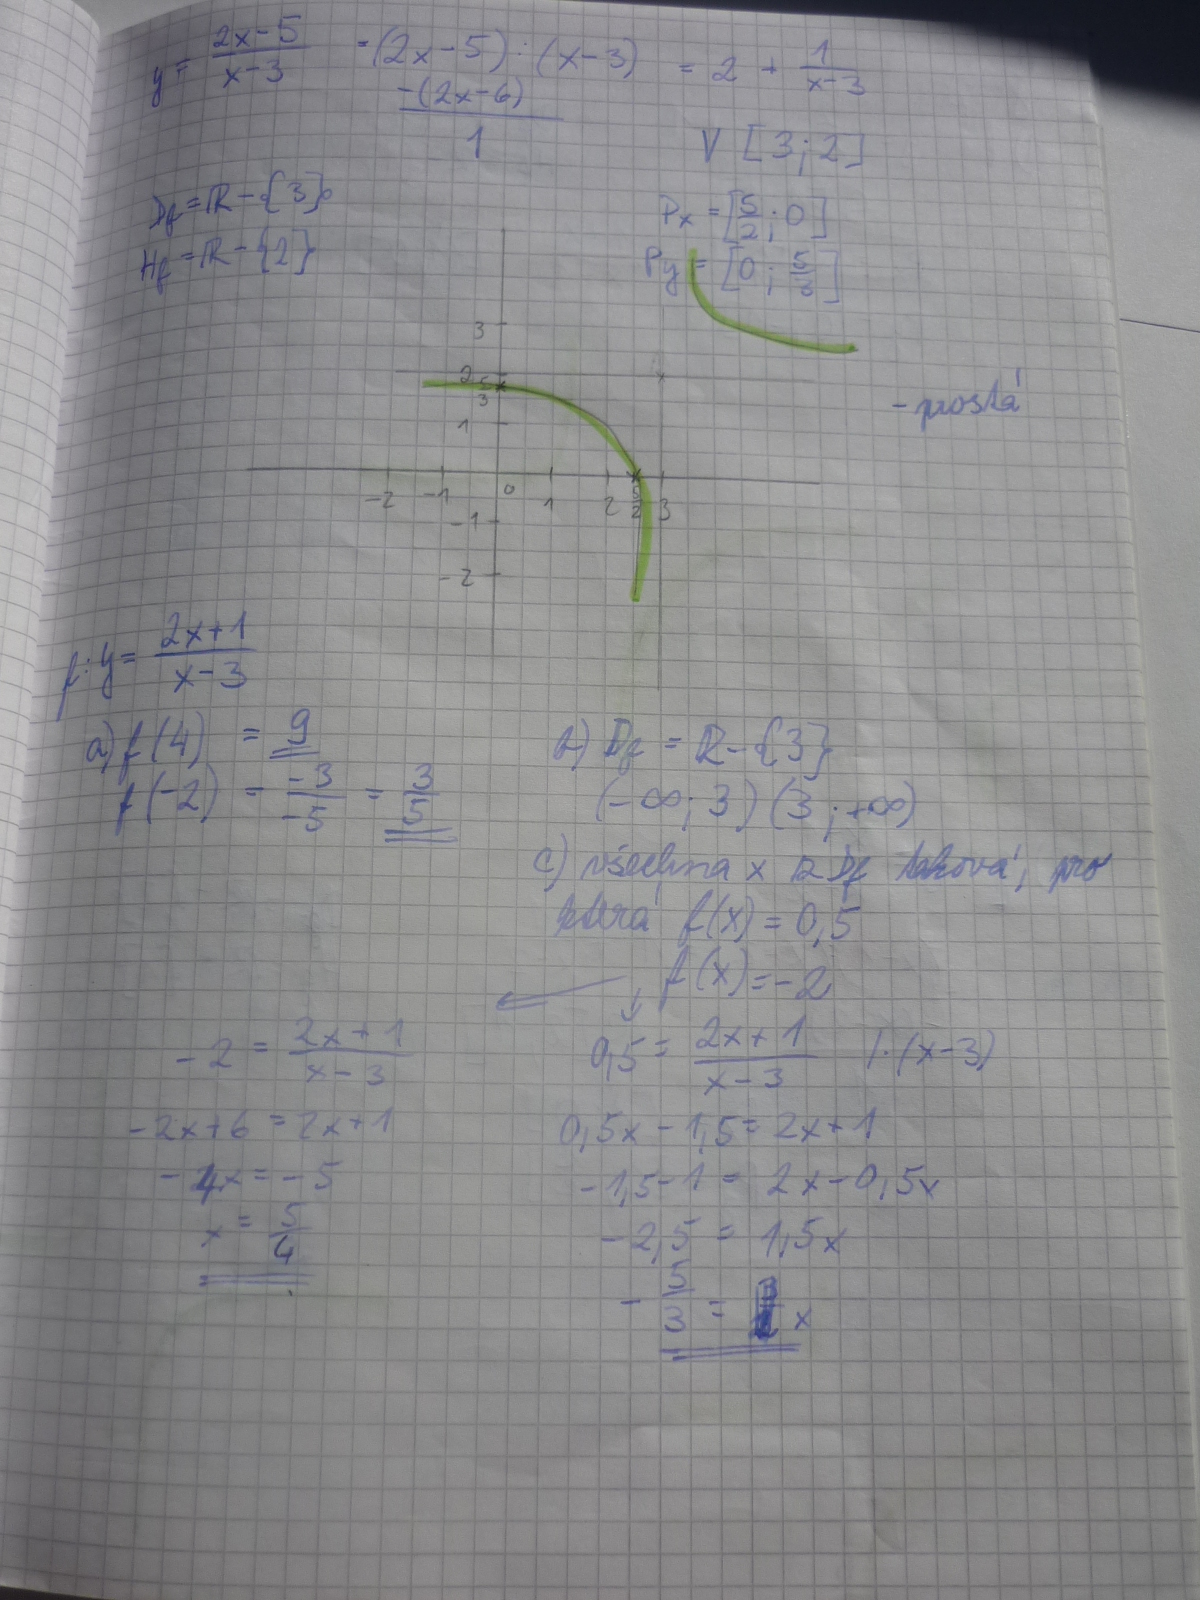 y = \frac{2x-5}{x-3} = (2x-5) : (x-3) = 2 + \frac{1}{x-3}
-(2x-6)
1
V [3; 2]
Df = R - {3}
Hf = R - {2}
Px = [\frac{5}{2}; 0]
Py = [0; \frac{5}{3}]
3
2
\frac{5}{3}
1
-2 -1 0 1 2 \frac{5}{2} 3
-1
-2
- prostá
f: y = \frac{2x+1}{x-3}
a) f(4) = 9
f(-2) = \frac{-3}{-5} = \frac{3}{5}
b) Df = R - {3}
(-∞; 3) (3; +∞)
c) všechna x z Df taková, pro
která f(x) = 0,5
f(x) = -2
-2 = \frac{2x+1}{x-3}
-2x+6 = 2x+1
-4x = -5
x = \frac{5}{4}
0,5 = \frac{2x+1}{x-3} / · (x-3)
0,5x - 1,5 = 2x+1
-1,5-1 = 2x-0,5x
-2,5 = 1,5x
-\frac{5}{3} = x